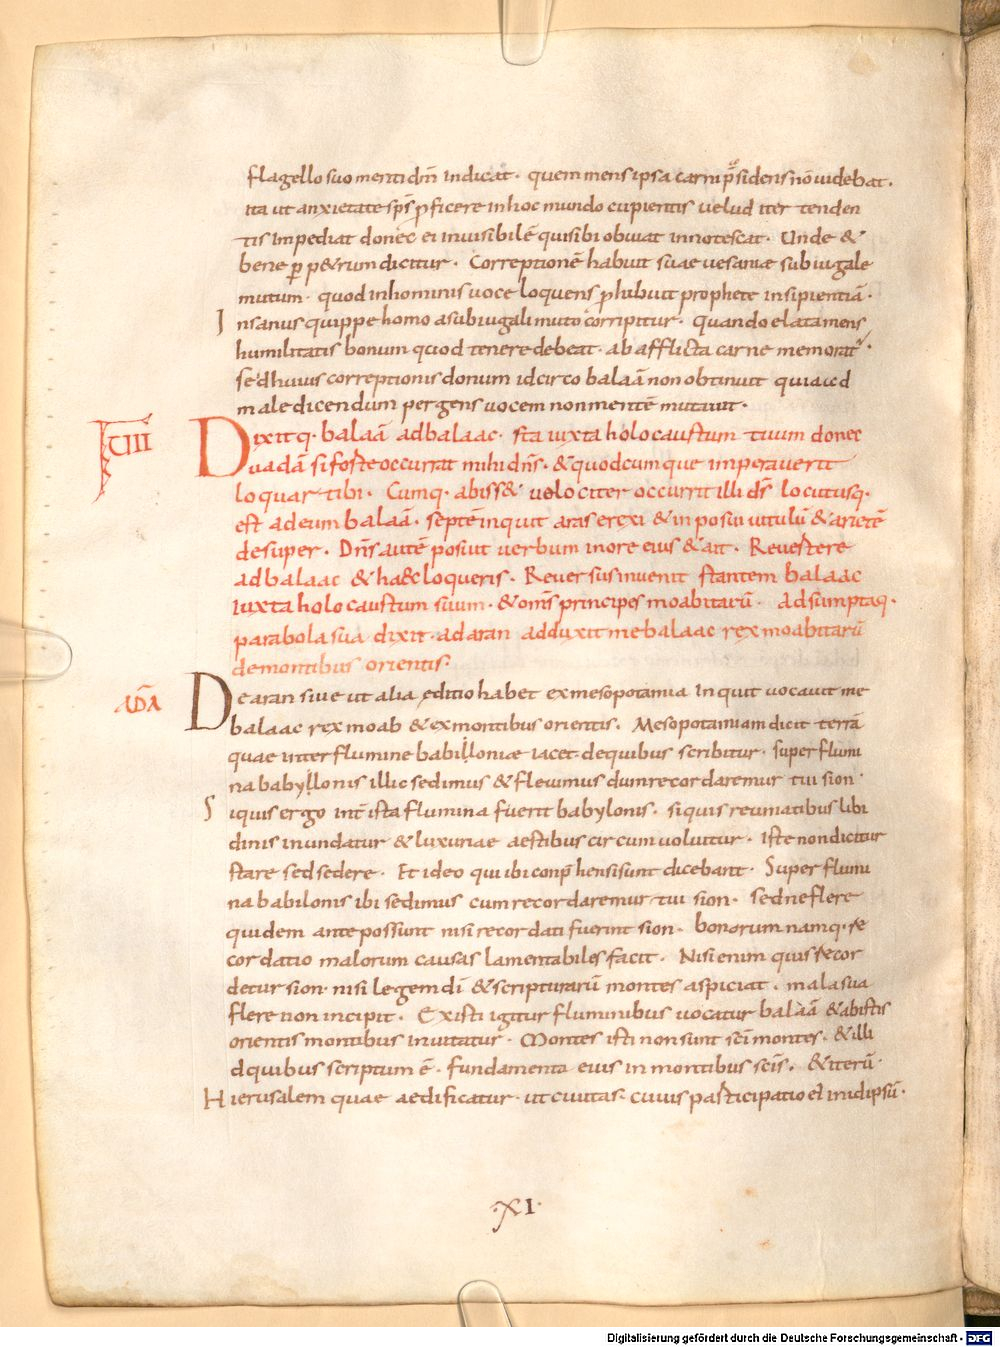 flagello suo menti dn̄m indicat · quem mens ipsa carni p̄sidens nō uidebat ·
ita ut anxietate sp̄s ꝓficere in hoc mundo cupientis uelud iter tenden
tis impediat donec ei inuisibilē qui sibi obuiat innotescat · Unde &
bene ꝑ p&rum dicitur · Correptionē habuit suae uesaniae subiugale
mutum · quod in hominis uoce loquens ꝓhibuit prophete insipientiā ·
Insanus quippe homo a subiugali muto corripitur · quando elata mens
humilitatis bonum quod tenere debeat · ab afflicta carne memorat᷑ ·
sed huius correptionis donum idcirco balaā non obtinuit quia ad
maledicendum pergens uocem non mentē mutauit ·
VII
Dixitq· balaā ad balaac · sta iuxta holocaustum tuum donec
uadā si forte occurrat mihi dn̄s · & quodcumque imperauerit
loquar tibi · Cumq· abiss& uelociter occurrit illi ds̄ locutusq·
est ad eum balaā · septē inquit aras erexi & inposui uitulū & arietē
desuper · Dn̄s autē posuit uerbum in ore eius & ait · Reuertere
ad balaac & haec loqueris · Reuersus inuenit stantem balaac
iuxta holocaustum suum · & om̄s principes moabitarū · adsumptaq·
parabola sua dixit · ad aran adduxit me balaac rex moabitarū
de montibus orientis ·
ADĀ
De aran siue ut alia editio habet ex mesopotamia inquit uocauit me
balaac rex moab & ex montibus orientis · Mesopotamiam dicit terrā
quae inter flumine babilloniae iacet de quibus scribitur · super flumi
na babyllonis illic sedimus & fleuimus dum recordaremur tui sion ·
Siquis ergo int̄ ista flumina fuerit babylonis · siquis reumatibus libi
dinis inundatur & luxuriae aestibus circumuoluitur · Iste non dicitur
stare sed sedere · Et ideo qui ibi conp̄hensi sunt dicebant · Super flumi
na babilonis ibi sedimus cum recordaremur tui sion · sed ne flere
quidem ante possunt nisi recordati fuerint sion · bonorum namq· re
cordatio malorum causas lamentabiles facit · Nisi enim quis recor
detur sion · nisi legem dī & scripturarū montes aspiciat · mala sua
flere non incipit · Ex isti igitur fluminibus uocatur balaā & ab istis
orientis montibus inuitatur · Montes isti non sunt sc̄i montes · & illi
d quibus scriptum ē · fundamenta eius in montibus sc̄is · & iterū ·
Hierusalem quae aedificatur · ut ciuitas · cuius participatio ei in idipsū ·
· XI ·
Digitalisierung gefördert durch die Deutsche Forschungsgemeinschaft - DFG